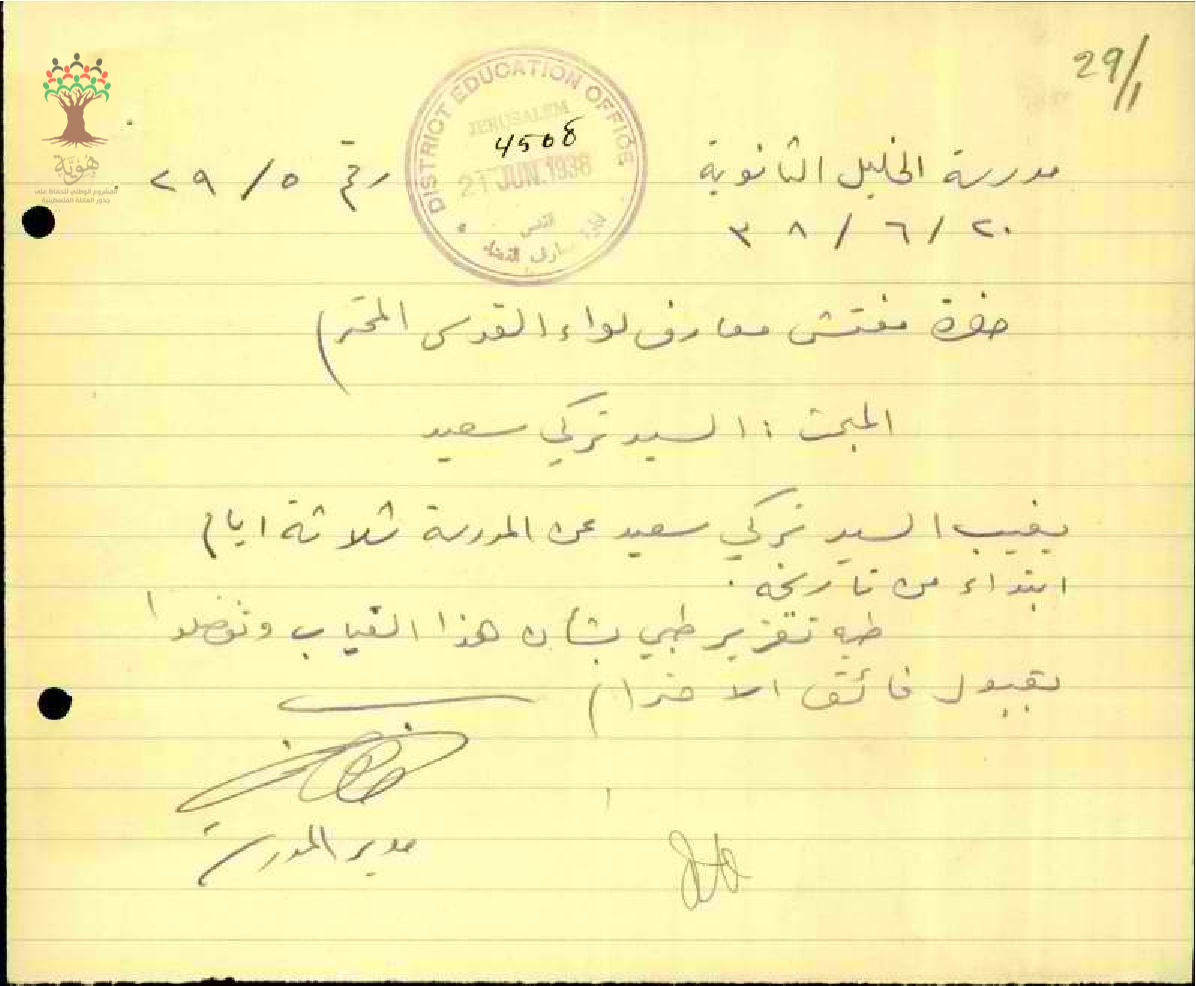 29/1
هوية
المشروع الوطني للحفاظ على
جذور العائلة الفلسطينية
DISTRICT EDUCATION OFFICE
JERUSALEM
4508
21 JUN. 1938
القدس
مدرسة الخليل الثانوية
رقم ٥ / ٢٩
٢٠ / ٦ / ٣٨
حضرة مفتش معارف لواء القدس المحترم
المبحث : السيد تركي سعيد
يغيب السيد تركي سعيد عن المدرسة ثلاثة ايام
ابتداء من تاريخه .
طيه تقرير طبي بشأن هذا الغياب وتفضلوا
بقبول فائق الاحترام
مدير المدرسة